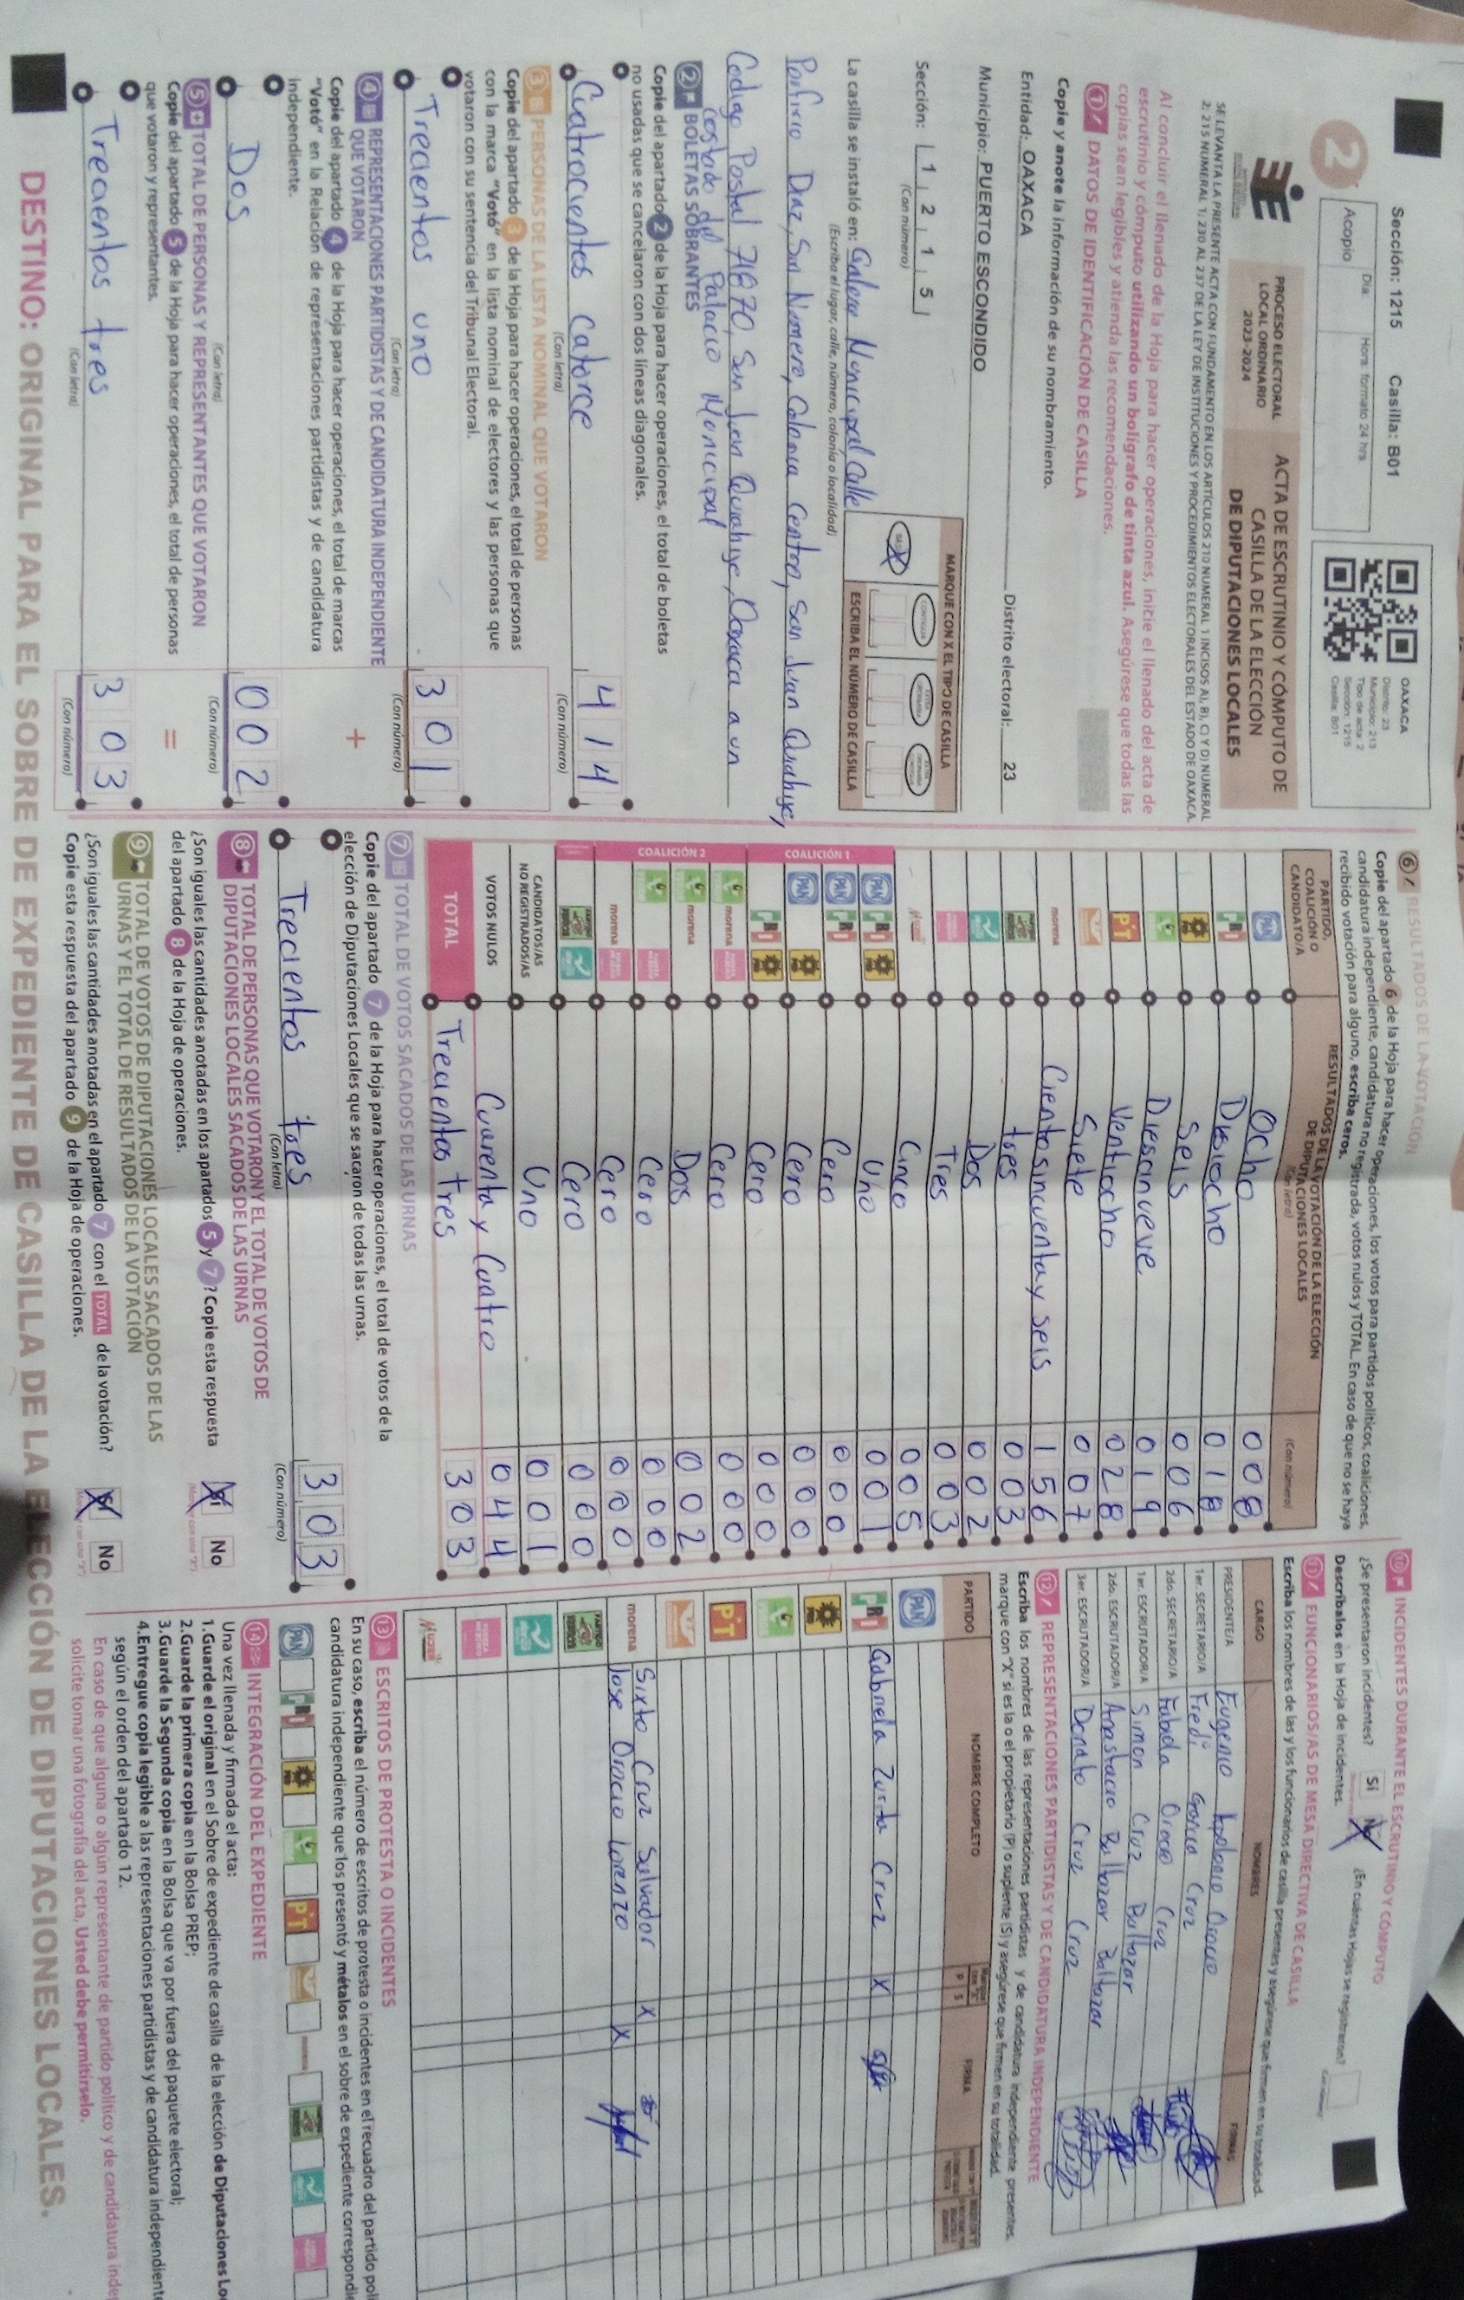 Sección: 1215 Casilla: B01
2
Día
Hora: formato 24 hrs
Acopio
OAXACA
Distrito: 23
Municipio: 213
Tipo de acta: 2
Sección: 1215
Casilla: B01
PROCESO ELECTORAL
LOCAL ORDINARIO
2023-2024
ACTA DE ESCRUTINIO Y CÓMPUTO DE
CASILLA DE LA ELECCIÓN
DE DIPUTACIONES LOCALES
SE LEVANTA LA PRESENTE ACTA CON FUNDAMENTO EN LOS ARTÍCULOS 210 NUMERAL 1 INCISOS A), B), C) Y D) NUMERAL
2; 215 NUMERAL 1; 230 AL 237 DE LA LEY DE INSTITUCIONES Y PROCEDIMIENTOS ELECTORALES DEL ESTADO DE OAXACA.
Al concluir el llenado de la Hoja para hacer operaciones, inicie el llenado del acta de
escrutinio y cómputo utilizando un bolígrafo de tinta azul. Asegúrese que todas las
copias sean legibles y atienda las recomendaciones.
1 DATOS DE IDENTIFICACIÓN DE CASILLA
Copie y anote la información de su nombramiento.
Entidad: OAXACA Distrito electoral: 23
Municipio: PUERTO ESCONDIDO
Sección: 1 2 1 5
(Con número)
MARQUE CON X EL TIPO DE CASILLA
ESCRIBA EL NÚMERO DE CASILLA
La casilla se instaló en: Galera Municipal Calle
(Escriba el lugar, calle, número, colonia o localidad)
Porfirio Diaz, Sin Numero, Colonia Centro, San Juan Quiahije,
Codigo Postal 71670, San Juan Quiahije, Oaxaca a un
costado del Palacio Municipal
2 BOLETAS SOBRANTES
Copie del apartado 2 de la Hoja para hacer operaciones, el total de boletas
no usadas que se cancelaron con dos líneas diagonales.
Cuatrocientos catorce 4 1 4
(Con letra) (Con número)
3 PERSONAS DE LA LISTA NOMINAL QUE VOTARON
Copie del apartado 3 de la Hoja para hacer operaciones, el total de personas
con la marca "Votó" en la lista nominal de electores y las personas que
votaron con su sentencia del Tribunal Electoral.
Trecientos uno 3 0 1
(Con letra) (Con número)
4 REPRESENTACIONES PARTIDISTAS Y DE CANDIDATURA INDEPENDIENTE
QUE VOTARON
Copie del apartado 4 de la Hoja para hacer operaciones, el total de marcas
"Votó" en la Relación de representaciones partidistas y de candidatura
independiente.
+
Dos 0 0 2
(Con letra) (Con número)
5 TOTAL DE PERSONAS Y REPRESENTANTES QUE VOTARON
Copie del apartado 5 de la Hoja para hacer operaciones, el total de personas
que votaron y representantes.
=
Trecientos tres 3 0 3
(Con letra) (Con número)
6 RESULTADOS DE LA VOTACIÓN
Copie del apartado 6 de la Hoja para hacer operaciones, los votos para partidos políticos, coaliciones,
candidatura independiente, candidatura no registrada, votos nulos y TOTAL. En caso de que no se haya
recibido votación para alguno, escriba ceros.
PARTIDO,
COALICIÓN O
CANDIDATO/A
RESULTADOS DE LA VOTACIÓN DE LA ELECCIÓN
DE DIPUTACIONES LOCALES
(Con letra) (Con número)
PAN Ocho 0 0 8
PRI Diesiocho 0 1 8
PRD Seis 0 0 6
Diesanueve 0 1 9
PT Ventiocho 0 2 8
Siete 0 0 7
morena Cientosincuenta y seis 1 5 6
tres 0 0 3
Dos 0 0 2
Tres 0 0 3
Cinco 0 0 5
COALICIÓN 1
PAN PRI PRD Uno 0 0 1
PAN PRI Cero 0 0 0
PAN PRD Cero 0 0 0
PRI PRD Cero 0 0 0
COALICIÓN 2
morena Cero 0 0 0
morena Dos 0 0 2
Cero 0 0 0
morena Cero 0 0 0
Cero 0 0 0
CANDIDATOS/AS
NO REGISTRADOS/AS Uno 0 0 1
VOTOS NULOS Cuarenta y Cuatro 0 4 4
TOTAL Trecientos tres 3 0 3
7 TOTAL DE VOTOS SACADOS DE LAS URNAS
Copie del apartado 7 de la Hoja para hacer operaciones, el total de votos de la
elección de Diputaciones Locales que se sacaron de todas las urnas.
Trecientos tres 3 0 3
(Con letra) (Con número)
8 TOTAL DE PERSONAS QUE VOTARON Y EL TOTAL DE VOTOS DE
DIPUTACIONES LOCALES SACADOS DE LAS URNAS
¿Son iguales las cantidades anotadas en los apartados 5 y 7? Copie esta respuesta
del apartado 8 de la Hoja de operaciones.
Sí No
9 TOTAL DE VOTOS DE DIPUTACIONES LOCALES SACADOS DE LAS
URNAS Y EL TOTAL DE RESULTADOS DE LA VOTACIÓN
¿Son iguales las cantidades anotadas en el apartado 7 con el TOTAL de la votación?
Copie esta respuesta del apartado 9 de la Hoja de operaciones.
Sí No
10 INCIDENTES DURANTE EL ESCRUTINIO Y CÓMPUTO
¿Se presentaron incidentes? Sí No ¿En cuántas Hojas se registraron?
Descríbalos en la Hoja de incidentes.
11 FUNCIONARIOS/AS DE MESA DIRECTIVA DE CASILLA
Escriba los nombres de las y los funcionarios de casilla presentes y asegúrese que firmen en su totalidad.
CARGO NOMBRES FIRMAS
PRESIDENTE/A Eugenio Apolonio Orocio
1er. SECRETARIO/A Fredi Garcia Cruz
2do. SECRETARIO/A Fabiola Orocio Cruz
1er. ESCRUTADOR/A Simon Cruz Baltazar
2do. ESCRUTADOR/A Anastacio Baltazar Baltazar
3er. ESCRUTADOR/A Donato Cruz Cruz
12 REPRESENTACIONES PARTIDISTAS Y DE CANDIDATURA INDEPENDIENTE
Escriba los nombres de las representaciones partidistas y de candidatura independiente presentes,
marque con "X" si es la o el propietario (P) o suplente (S) y asegúrese que firmen en su totalidad.
PARTIDO NOMBRE COMPLETO P S FIRMA
PAN
PRI Gabriela Zurita Cruz X
PRD
PT
morena Sixto Cruz Salvador X
Jose Orocio Lorenzo X
13 ESCRITOS DE PROTESTA O INCIDENTES
En su caso, escriba el número de escritos de protesta o incidentes en el recuadro del partido pol
candidatura independiente que los presentó y métalos en el sobre de expediente correspondi
PAN PRI PRD PT
14 INTEGRACIÓN DEL EXPEDIENTE
Una vez llenada y firmada el acta:
1.Guarde el original en el Sobre de expediente de casilla de la elección de Diputaciones Lo
2.Guarde la primera copia en la Bolsa PREP;
3.Guarde la Segunda copia en la Bolsa que va por fuera del paquete electoral;
4.Entregue copia legible a las representaciones partidistas y de candidatura independient
según el orden del apartado 12.
En caso de que alguna o algún representante de partido político y de candidatura inde
solicite tomar una fotografía del acta, Usted debe permitírselo.
DESTINO: ORIGINAL PARA EL SOBRE DE EXPEDIENTE DE CASILLA DE LA ELECCIÓN DE DIPUTACIONES LOCALES.